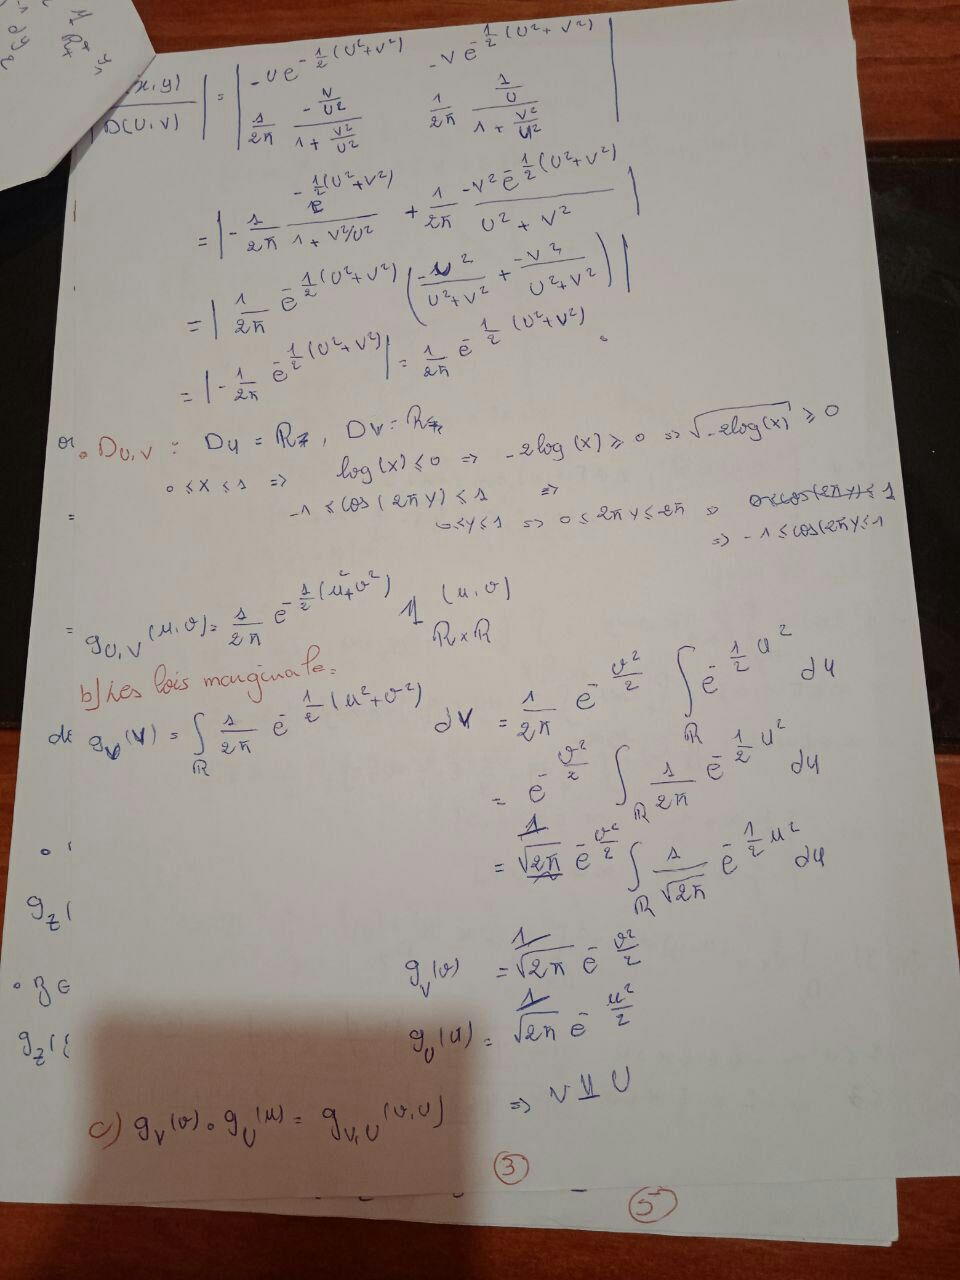 (x,y) / D(U,V) | = | -U e^{-1/2 (U²+V²)}   -V e^{-1/2 (U²+V²)} |
1/2π · (-V/U²)/(1+V²/U²)   1/2π · (1/U)/(1+V²/U²)
= | -1/2π · e^{-1/2(U²+V²)}/(1+V²/U²) + 1/2π · -V² e^{-1/2(U²+V²)}/(U²+V²) |
= | 1/2π e^{-1/2(U²+V²)} ( -U²/(U²+V²) + -V²/(U²+V²) ) |
= | -1/2π e^{-1/2(U²+V²)} | = 1/2π e^{-1/2 (U²+V²)} .
or . D_{U,V} : D_U = R , D_V = R
0 ≤ x ≤ 1 ⇒ log(x) ≤ 0 ⇒ -2log(x) ≥ 0 ⇒ √-2log(x) ≥ 0
-1 ≤ cos(2πy) ≤ 1 ⇒
0≤y≤1 ⇒ 0 ≤ 2πy ≤ 2π ⇒ 0≤cos(2πy)≤1
⇒ -1≤cos(2πy)≤1
g_{U,V}(u,v) = 1/2π e^{-1/2(u²+v²)} 1_{R×R}(u,v)
b) Les lois marginale.
de g_V(V) = ∫_R 1/2π e^{-1/2(u²+v²)} dV = 1/2π e^{-v²/2} ∫_R e^{-1/2 u²} du
= e^{-v²/2} ∫_R 1/2π e^{-1/2 u²} du
= 1/√2π e^{-v²/2} ∫_R 1/√2π e^{-1/2 u²} du
g_Z(
g_V(v) = 1/√2π e^{-v²/2}
g_Z(
g_U(u) = 1/√2π e^{-u²/2}
c) g_V(v) . g_U(u) = g_{V,U}(v,u) ⇒ V ⫫ U
3
5